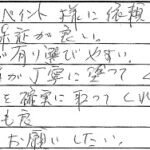 ペイント 様に依頼
保証が良い。
が有り選びやすい。
が丁寧に塗って く
を確実に取ってくれ
も良
お願いしたい。